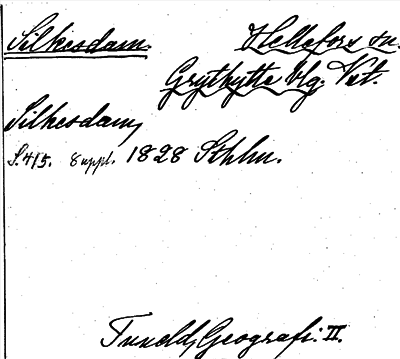 Silkesdam. Hellefors sn.
Grythytte blg. Vst.
Silkesdam,
S. 415. 8 uppl. 1828 Sthlm.
Tuneld, Geografi. II.